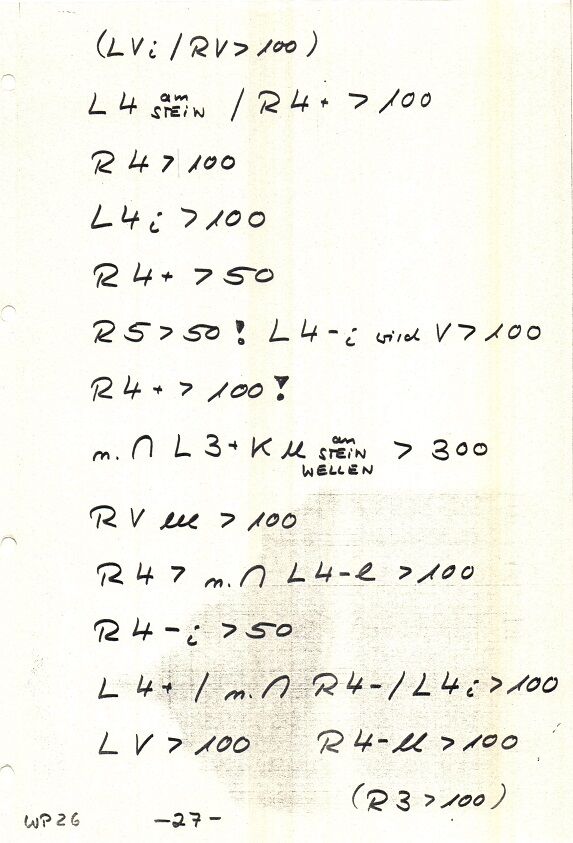 (LVi / RV > 100)
L4 am STEIN / R4+ > 100
R4 > 100
L4i > 100
R4+ > 50
R5 > 50! L4-i wird V > 100
R4+ > 100!
n. ∩ L3+ K ll an STEIN WELLEN > 300
RV lll > 100
R4 > n. ∩ L4-l > 100
R4-i > 50
L4+ / n. ∩ R4- / L4i > 100
LV > 100 R4-ll > 100
(R3 > 100)
WP26 -27-